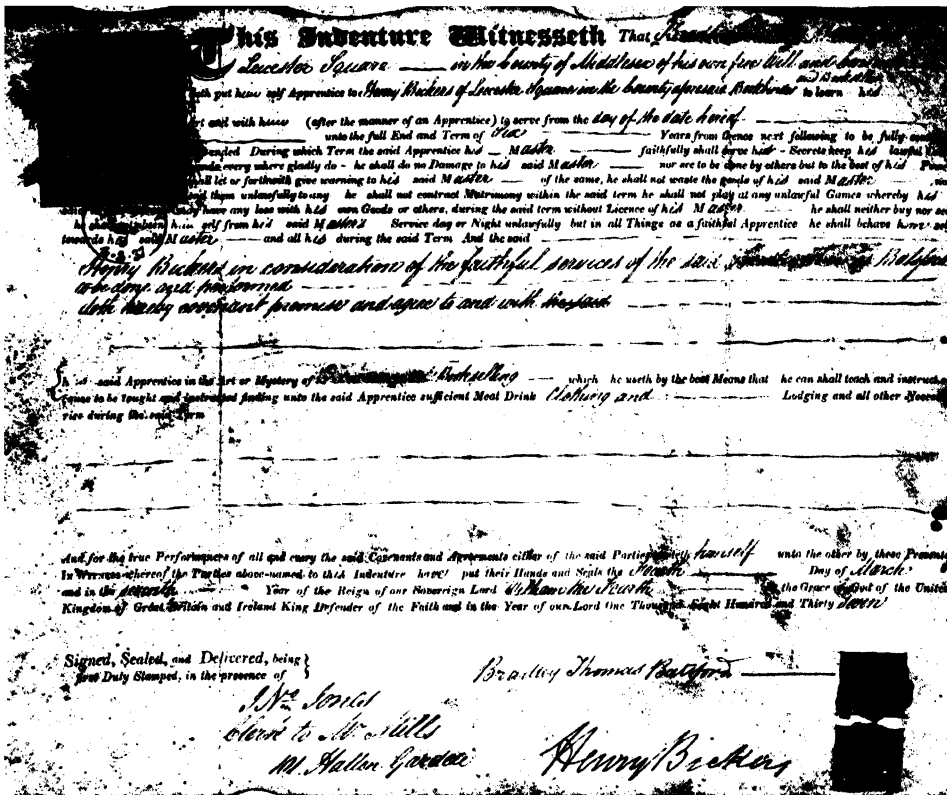 This Indenture Witnesseth That
Leicester Square in the County of Middlesex of his own free Will and
doth put him self Apprentice to Henry Bickers of Leicester Square in the County aforesaid Bookbinder and Bookseller to learn his
Art and with him (after the manner of an Apprentice) to serve from the day of the date hereof
unto the full End and Term of Years from thence next following to be fully
ended During which Term the said Apprentice his Master faithfully shall serve his Secrets keep his lawful
every where gladly do he shall do no Damage to his said Master nor see to be done by others but to the best of his
shall let or forthwith give warning to his said Master of the same, he shall not waste the goods of his said Master
them unlawfully to any he shall not contract Matrimony within the said term he shall not play at any unlawful Games whereby his
may have any loss with his own Goods or others, during the said term without Licence of his Master he shall neither buy nor
he shall not absent him self from his said Masters Service day or Night unlawfully but in all Things as a faithful Apprentice he shall behave him
towards his said Master and all his during the said Term And the said
Henry Bickers in consideration of the faithful services of the said Batsford
to be done and performed
doth hereby covenant promise and agree to and with the said
his said Apprentice in the Art or Mystery of Bookselling which he useth by the best Means that he can shall teach and instruct
cause to be taught and instructed finding unto the said Apprentice sufficient Meat Drink Clothing and Lodging and all other
ries during the said Term
And for the true Performance of all and every the said Covenants and Agreements either of the said Parties himself unto the other by these
In Witness whereof the Parties above-named to this Indenture have put their Hands and Seals the Fourth Day of March
and in the seventh Year of the Reign of our Sovereign Lord William the Fourth the Grace of God of the United
Kingdom of Great Britain and Ireland King Defender of the Faith and in the Year of our Lord One Thousand Eight Hundred and Thirty Seven
Signed, Sealed, and Delivered, being
first Duty Stamped, in the presence of
Bradley Thomas Batsford
Jno Jones
Clerk to Mr Mills
Hatton Garden
Henry Bickers